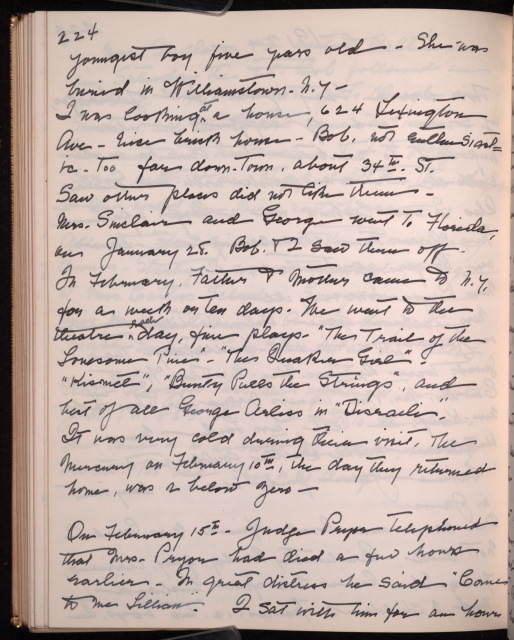 224
youngest boy five years old - She was
buried in Williamstown - N.Y -
I was looking at a house, 624 Lexington
Ave - nice brick house - Bob. not enthusiast=
ic - Too far down-Town. about 34th St.
Saw other places did not like them -
Mrs. Sinclair and George went to Florida,
on January 25. Bob. & I saw them off -
In February. Father & Mother came to N.Y.
for a week or ten days. We went to the
theatre each day, five plays - "The Trail of the
Lonesome Pine" - "The Quaker Girl" -
"Kismet", "Bunty Pulls the Strings", and
best of all George Arliss in "Disraeli".
It was very cold during their visit, The
Mercury on February 10th, the day they returned
home, was 2 below zero -
On February 15th - Judge Pryor telephoned
that Mrs. Pryor had died a few hours
earlier - In great distress he said "Come
to me Lillian". I sat with him for an hour